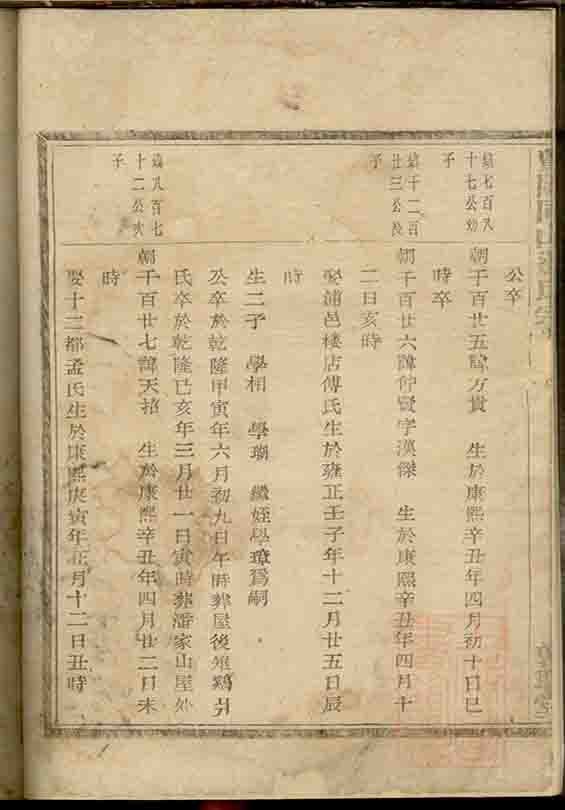 公卒
鎮七百八
十七公幼
子
朝千百廿五諱万貴 生於康熙辛丑年四月初十日巳
時卒
鎮千二百
廿三公長
子
朝千百廿六諱佇賢字漢傑 生於康熙辛丑年四月十
二日亥時
娶浦邑樓店傅氏生於雍正壬子年十二月廿五日辰
時
生二子 學相 學瑚 繼姪學璋爲嗣
公卒於乾隆甲寅年六月初九日午時葬屋後雉鷄弁
氏卒於乾隆己亥年三月廿一日寅時葬潘家山屋外
鎮八百七
十二公次
子
朝千百廿七諱天招 生於康熙辛丑年四月廿二日未
時
娶十二都孟氏生於康熙庚寅年正月十二日丑時